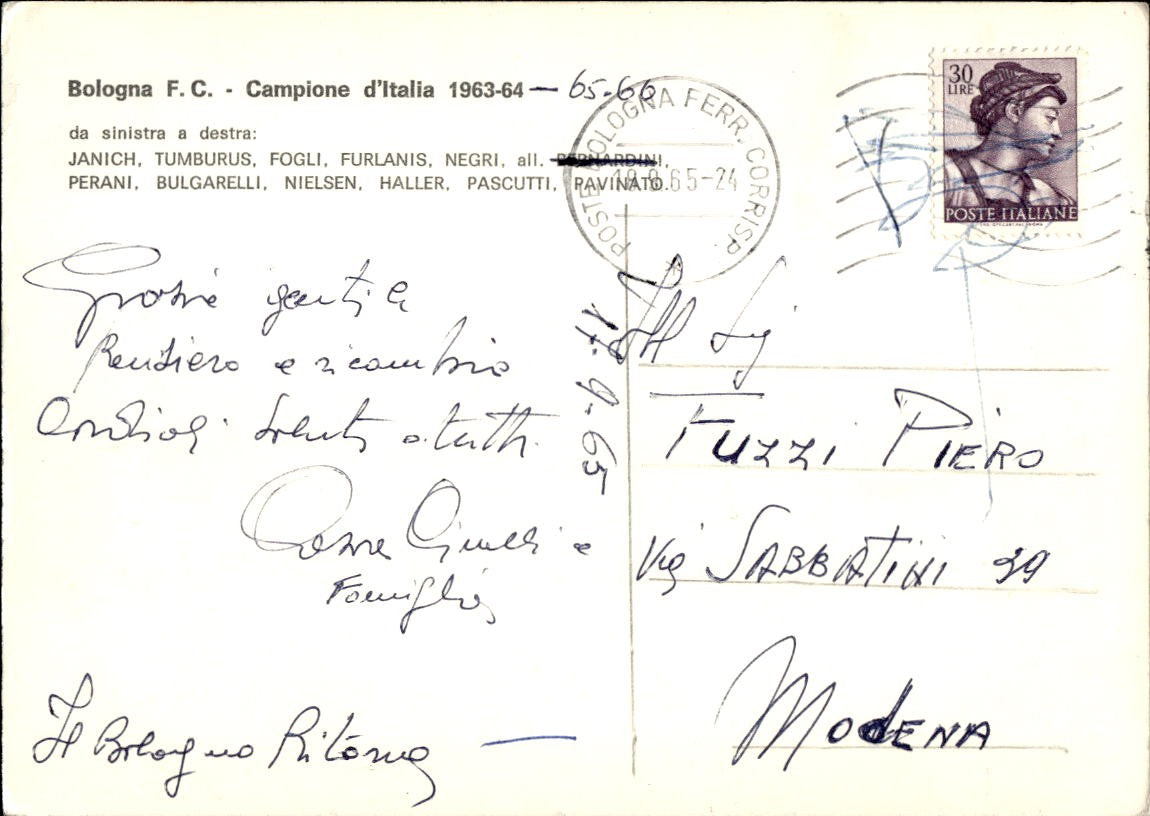 Bologna F. C. - Campione d'Italia 1963-64 — 65-66
da sinistra a destra:
JANICH, TUMBURUS, FOGLI, FURLANIS, NEGRI, all. BERNARDINI,
PERANI, BULGARELLI, NIELSEN, HALLER, PASCUTTI, PAVINATO.
POSTE BOLOGNA FERR. CORRISP.
65-24
30
LIRE
POSTE ITALIANE
Grazie gentile
Pensiero e ricambio
Cordiali Saluti a tutti
e
Famiglia
Il Bologna Ritorna —
17-9-65
Sig
FUZZI PIERO
Via SABBATINI 39
MODENA